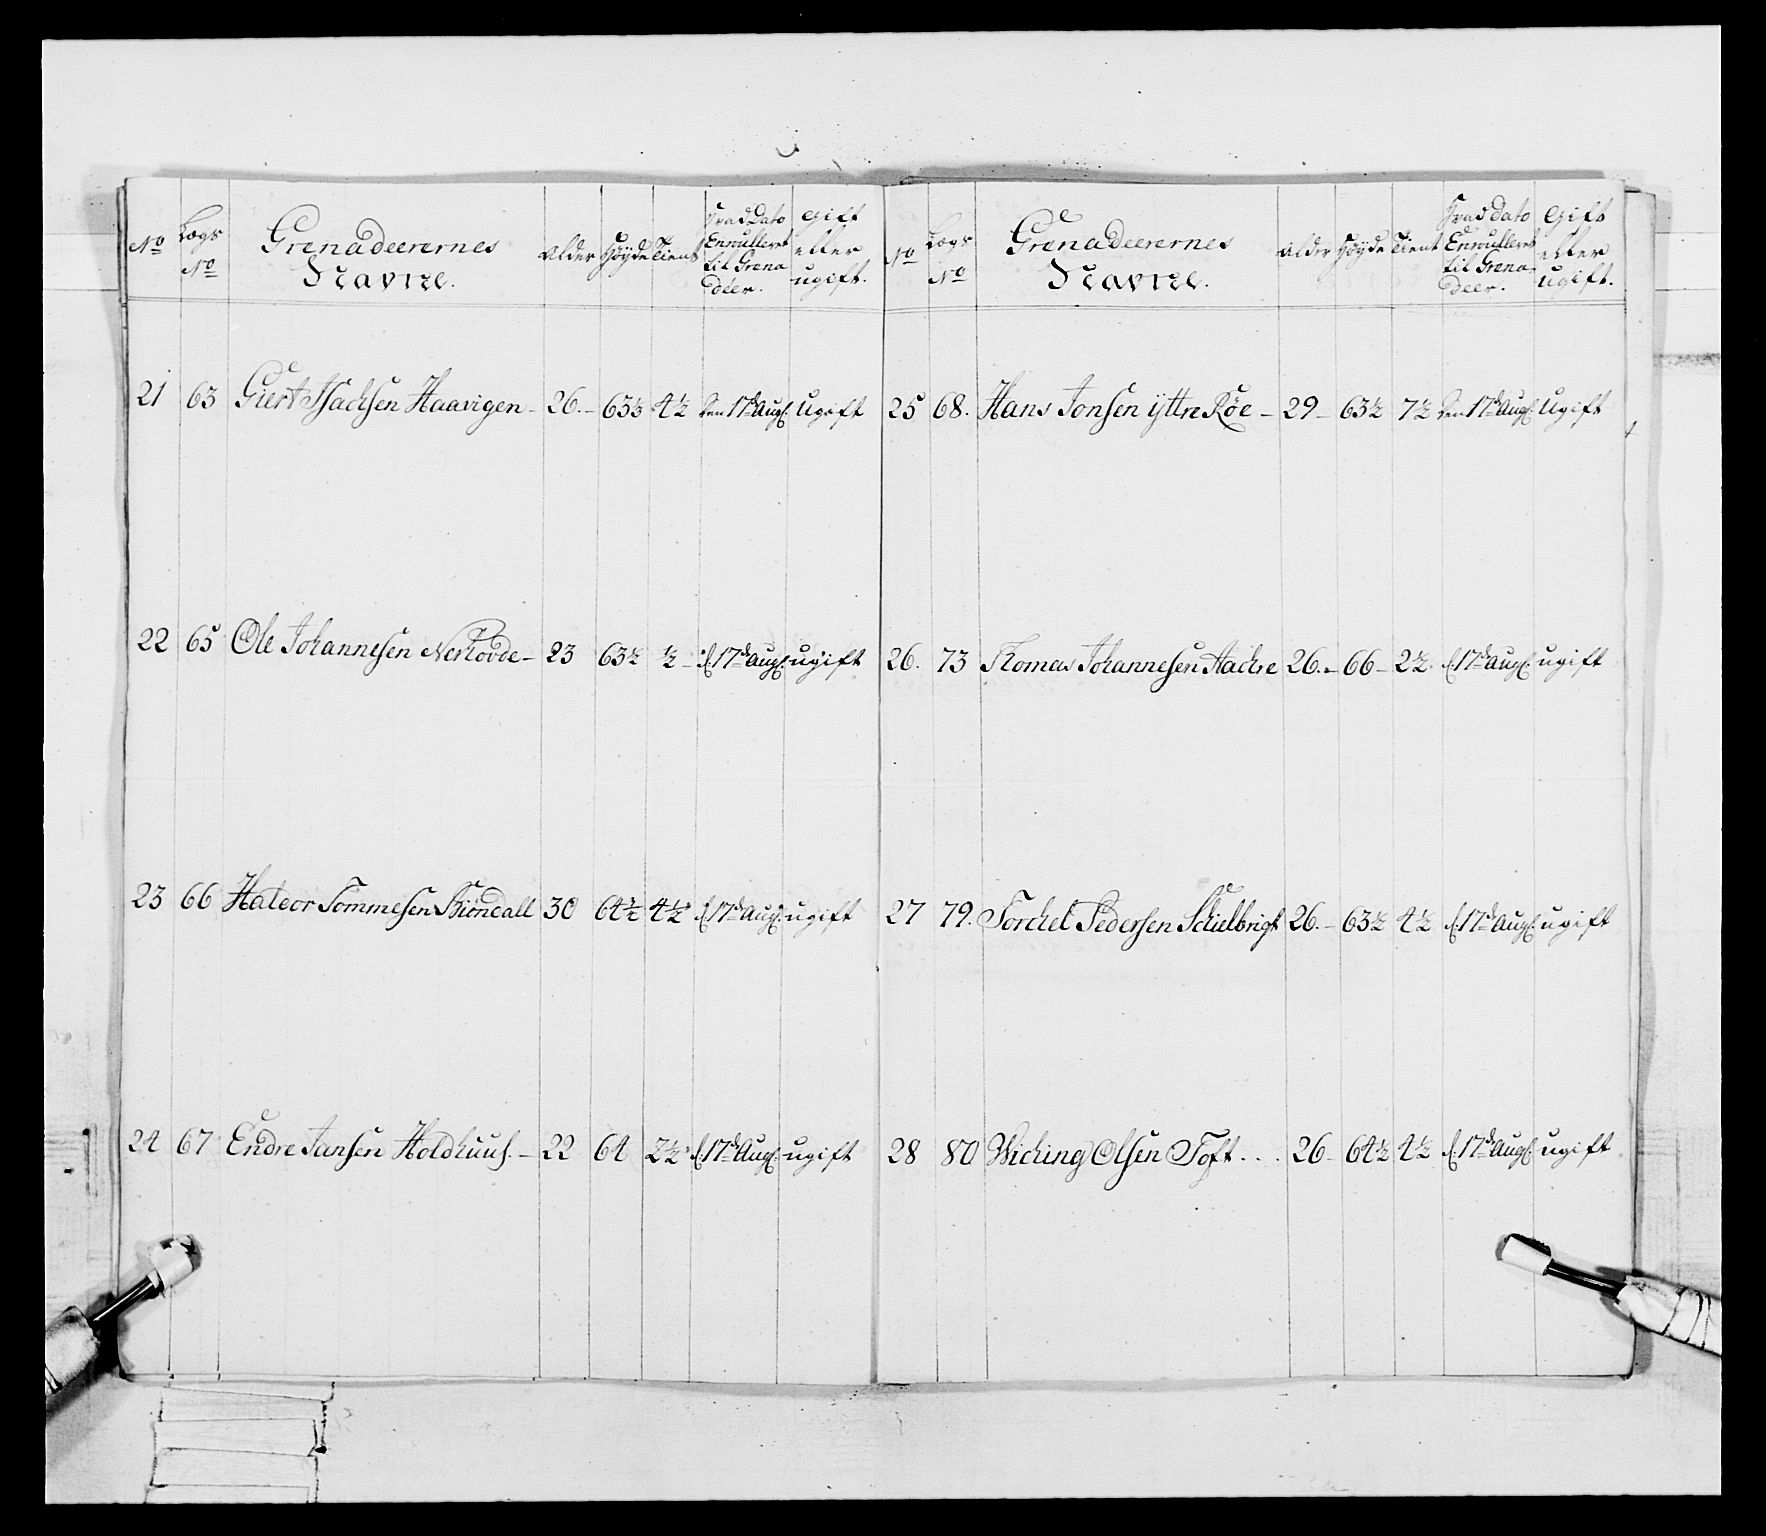 No Lægs No Grenadeerernes Navne. Alder Høyde Tient Fra d Dato Enrulleret til Grenadeer. Gift eller ugift.
21 63 Giert Isachsen Haavigen – 26. – 63½ 4½ den 17de Augs. Ugift
22 65 Ole Johannesen Nerhovde – 23 63½ ½ – d. 17de Augs. ugift
23 66 Haldor Tommesen Kiöndall 30 64½ 4½ d. 17de Augs. ugift
24 67 Endre Jansen Holdhuus. – 22 64 2½ d. 17de Augs. ugift
No Lægs No Grenadeerernes Navne. Alder Høyde Tient Fra d Dato Enrulleret til Grenadeer. Gift eller ugift.
25 68. Hans Jonsen yttre Röe – 29 – 63½ 7½ den 17de Augs. Ugift
26. 73 Thomas Johannesen Aachre 26. – 66 – 2½. d. 17de Augs. ugift
27 79. Torchel Pedersen Schielbrigt 26. – 63½ 4½ d. 17de Augs. ugift
28 80 Wiching Olsen Toft . . . 26 – 64½ 4½ d. 17de Augs. ugift